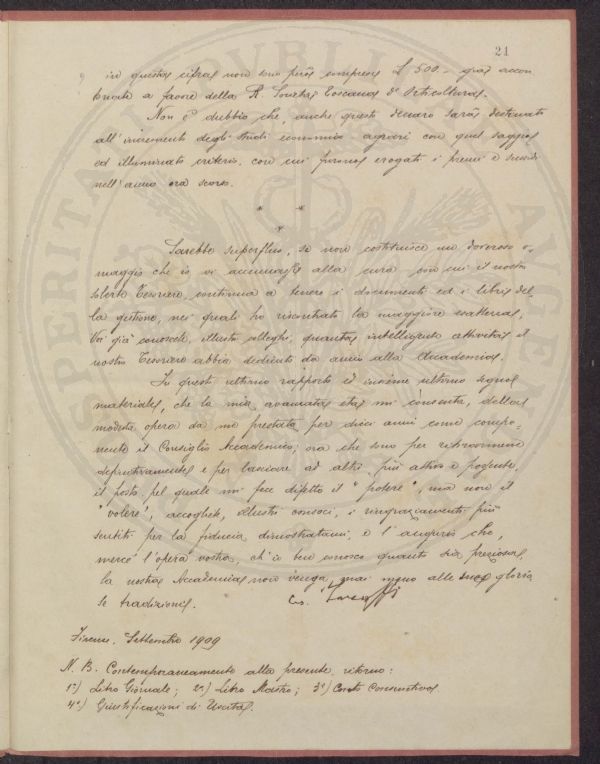 21
in questa cifra non sono però comprese £ 500.- già accon
tonate a favore della R. Società Toscana d'Orticultura.
Non è dubbio che, anche questo denaro sarà destinato
all'incremento degli studi economico agrari con quel saggio
ed illuminato criterio, con cui furono erogati i premi e sussidi
nell'anno ora scorso.
* *
*
Sarebbe superfluo, se non costituisce un doveroso o-
maggio che io vi accennassi alla cura con cui il nostro
solerte Tesoriere, continua a tenere i documenti ed i libri del-
la gestione, nei quali ho riscontrato la maggiore esattezza.
Voi già conoscete, illustri colleghi, quanta intelligente attività il
nostro Tesoriere abbia dedicato da anni alla Accademia.
In questo ultimo rapporto è insieme ultimo segno
materiale, che la mia avanzata età mi consente, della
modesta opera da me prestata per dieci anni come compo-
nente il Consiglio Accademico; ora che sono per ritirarmi
definitivamente e per lasciare ad altri più attivo e possente,
il posto pel quale mi fece difetto il "potere", ma non il
"volere", accogliete, illustri consoci, i ringraziamenti più
sentiti per la fiducia dimostratami, e l'augurio che,
mercè l'opera vostra, ch'io ben conosco quanto sia preziosa,
la nostra Accademia non venga mai meno alle sue glorio
se tradizioni.
Firenze. Settembre 1909
N. B. Contemporaneamente alla presente, ritorno:
1°) Libro Giornale; 2°) Libro Mastro; 3°) Conto Consuntivo
4°) Giustificazioni di Uscita.
SPERITA PVBLI